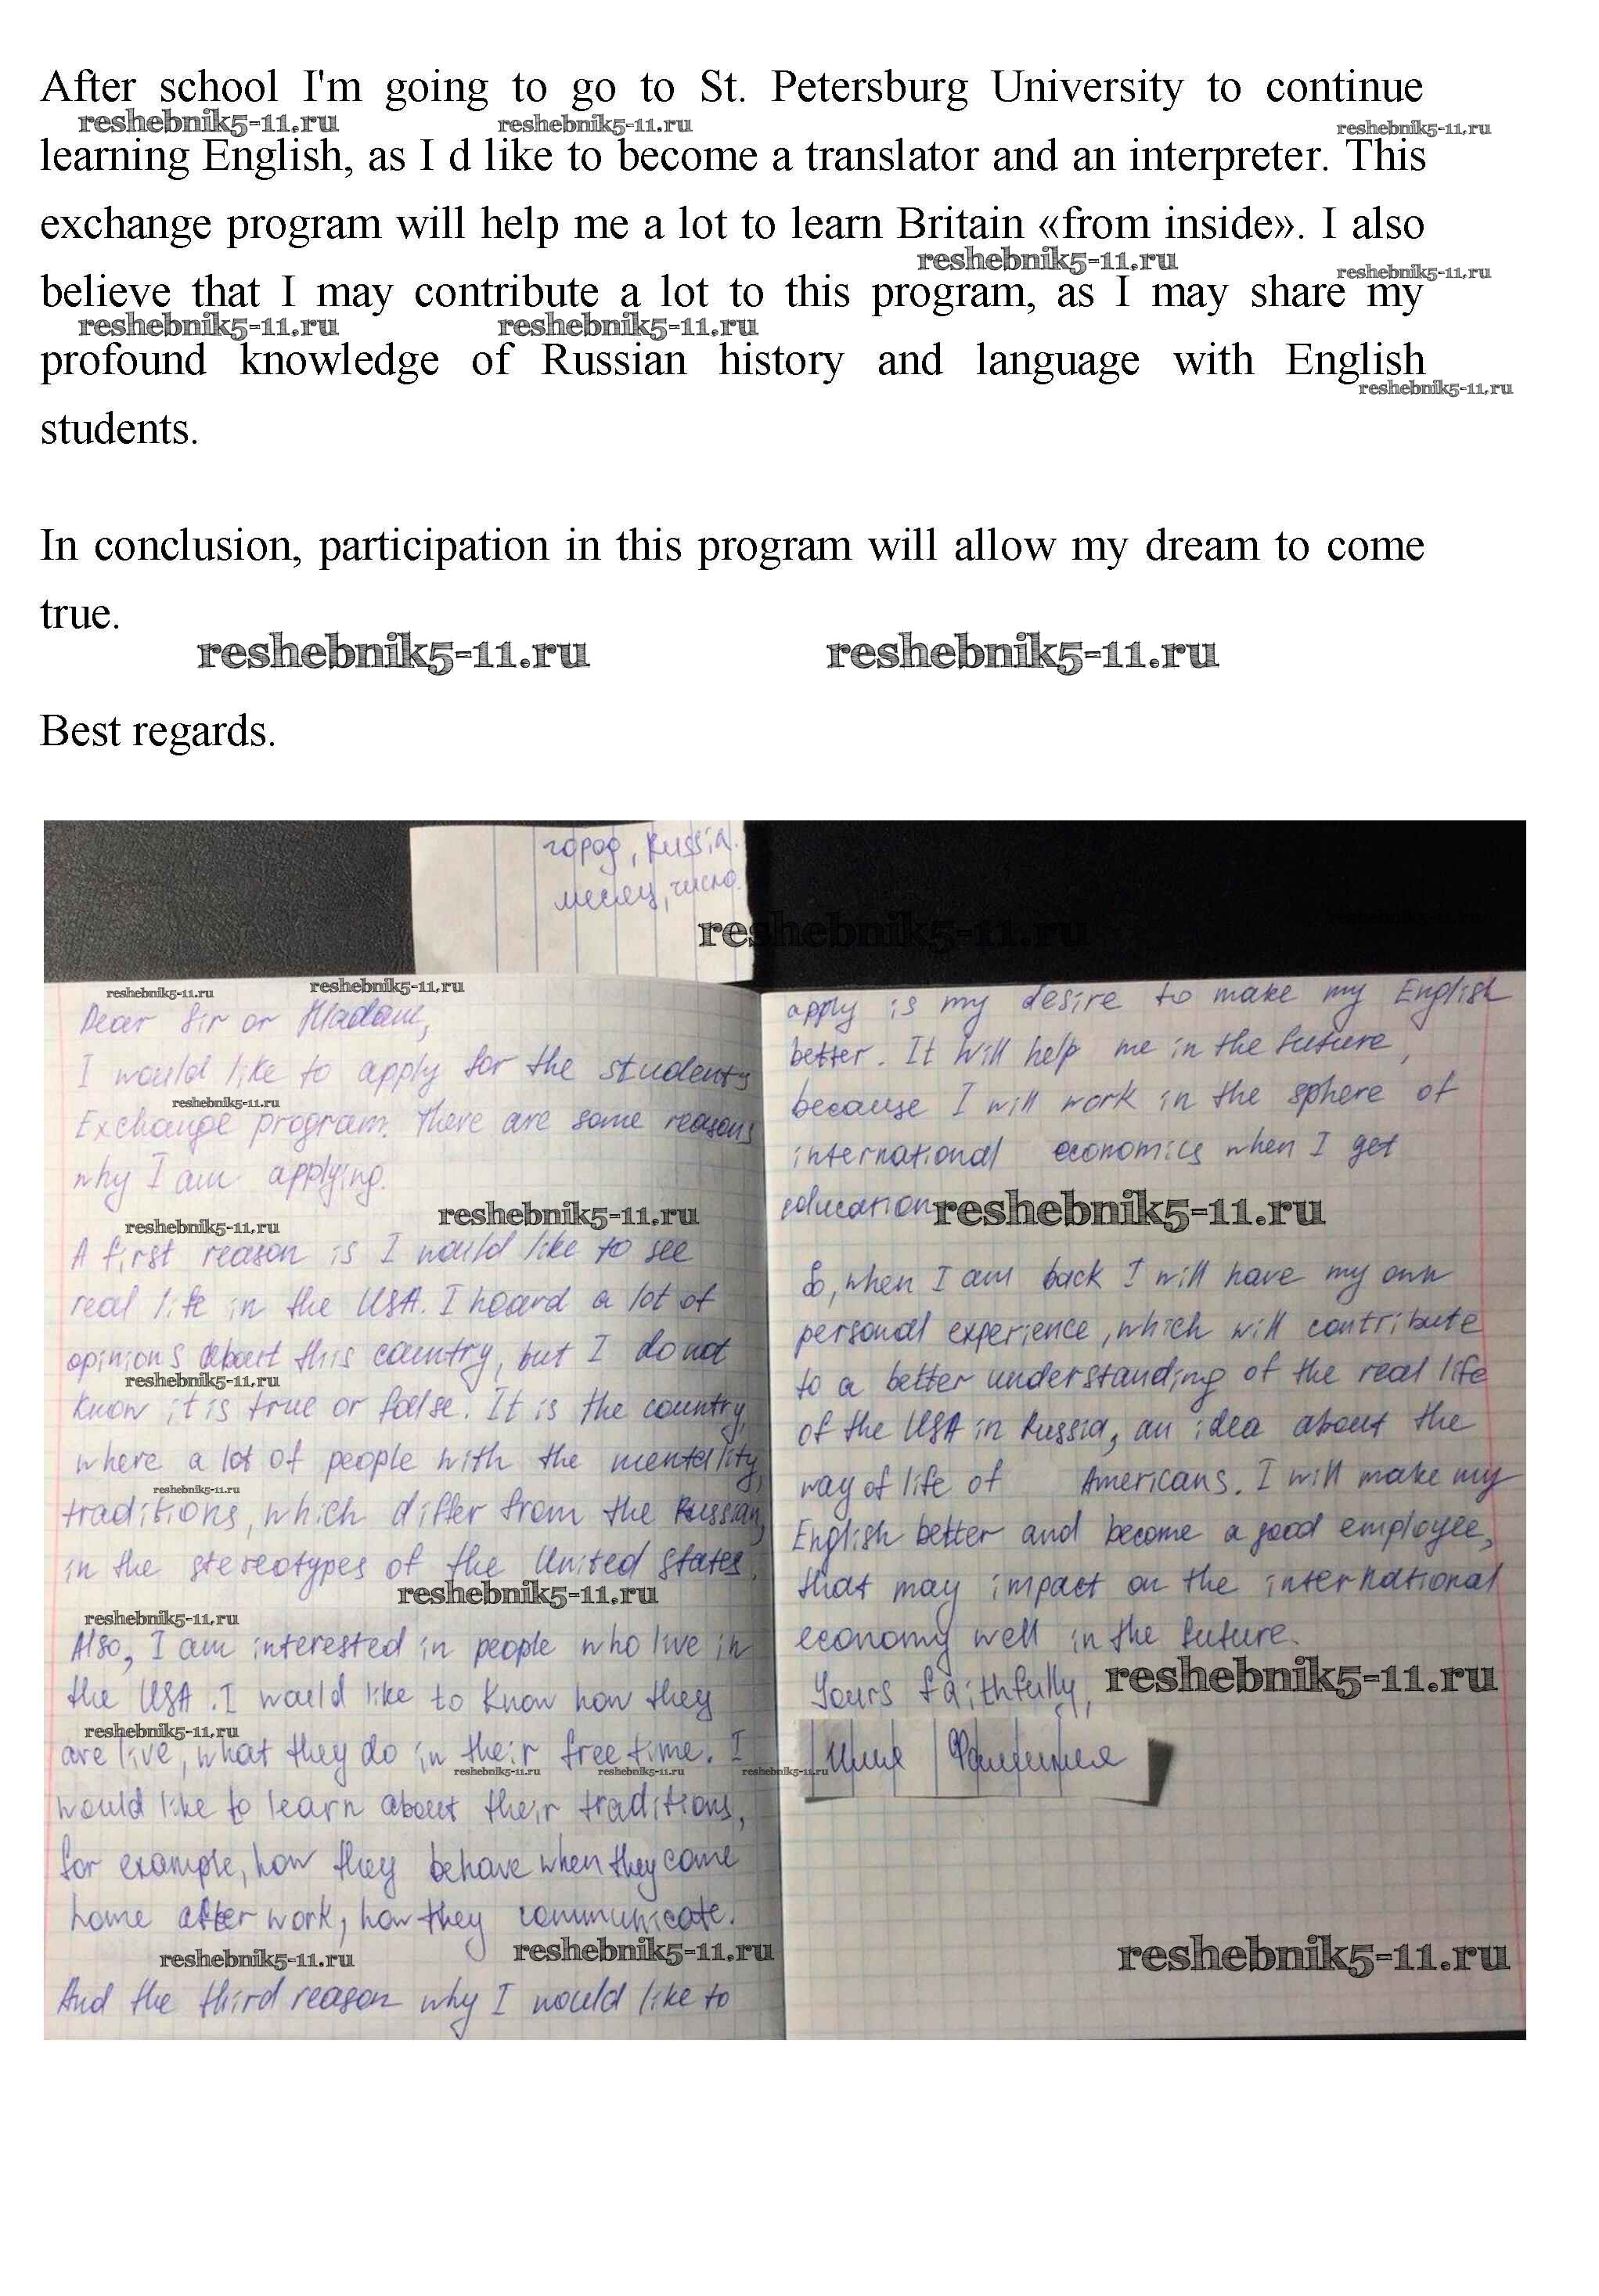 After school I'm going to go to St. Petersburg University to continue
reshebnik5-11.ru reshebnik5-11.ru reshebnik5-11.ru
learning English, as I d like to become a translator and an interpreter. This
exchange program will help me a lot to learn Britain «from inside». I also
reshebnik5-11.ru reshebnik5-11.ru
believe that I may contribute a lot to this program, as I may share my
reshebnik5-11.ru reshebnik5-11.ru
profound knowledge of Russian history and language with English
reshebnik5-11.ru
students.
In conclusion, participation in this program will allow my dream to come
true.
reshebnik5-11.ru reshebnik5-11.ru
Best regards.
город, Russia.
месяц, число.
reshebnik5-11.ru
reshebnik5-11.ru reshebnik5-11.ru
Dear Sir or Madam,
I would like to apply for the students
reshebnik5-11.ru
Exchange program. There are some reasons
why I am applying.
reshebnik5-11.ru reshebnik5-11.ru
A first reason is I would like to see
real life in the USA. I heard a lot of
opinions about this country, but I do not
reshebnik5-11.ru
know it is true or false. It is the country,
where a lot of people with the mentality,
reshebnik5-11.ru
traditions, which differ from the Russian,
in the stereotypes of the United States.
reshebnik5-11.ru
reshebnik5-11.ru
Also, I am interested in people who live in
the USA. I would like to know how they
reshebnik5-11.ru
are live, what they do in their free time. I
reshebnik5-11.ru reshebnik5-11.ru reshebnik5-11.ru
would like to learn about their traditions,
for example, how they behave when they come
home after work, how they communicate.
reshebnik5-11.ru reshebnik5-11.ru
And the third reason why I would like to
apply is my desire to make my English
better. It will help me in the future,
because I will work in the sphere of
international economics when I get
education
reshebnik5-11.ru
So, when I am back I will have my own
personal experience, which will contribute
to a better understanding of the real life
of the USA in Russia, an idea about the
way of life of Americans. I will make my
English better and become a good employee,
that may impact on the international
economy well in the future.
Yours faithfully,
reshebnik5-11.ru
Имя Фамилия
reshebnik5-11.ru